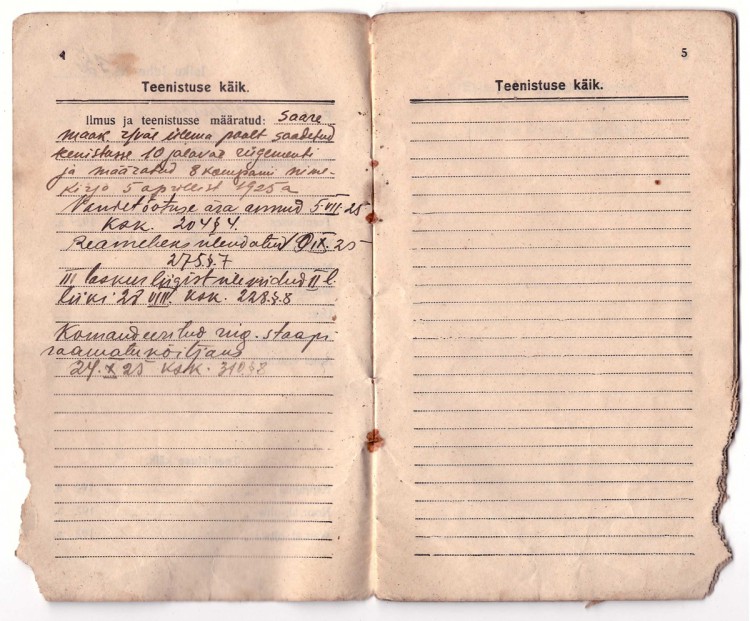 4
Teenistuse käik.
Ilmus ja teenistusse määratud: Saare
maak. ülema poolt saadetud
10 jalaväe rügementi
ja määratud 8 kompanii nime-
kirja 5 aprillist 1925 a
Vandetõotuse ära annud 5 VII 25
Käsk. 204 § 4.
Reameheks ülendatud IX. 25
275 § 7
III laskurliigist üleviidud II l.
liiki 28 VIII. Käsk. 228. § 8
Komandeeritud rüg. staapi
raamatuköitjaks
24. X 25 Käsk. 310 § 2
5
Teenistuse käik.